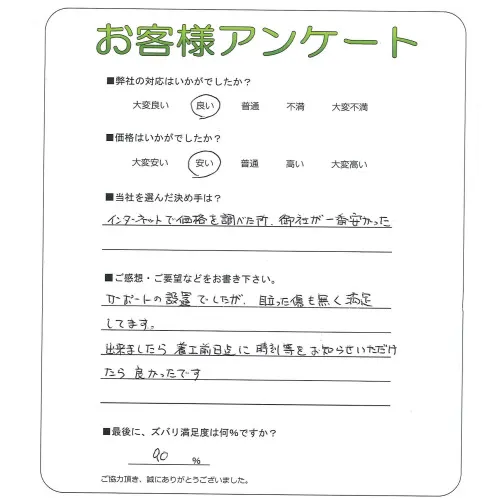 お客様アンケート
■弊社の対応はいかがでしたか？
大変良い 良い 普通 不満 大変不満
■価格はいかがでしたか？
大変安い 安い 普通 高い 大変高い
■当社を選んだ決め手は？
インターネットで価格を調べた所、御社が一番安かった
■ご感想・ご要望などをお書き下さい。
カーポートの設置でしたが、目立った傷も無く満足
してます。
出来ましたら 着工前日迄に 時刻等をお知らせいただけ
たら 良かったです
■最後に、ズバリ満足度は何%ですか？
90 %
ご協力頂き、誠にありがとうございました。